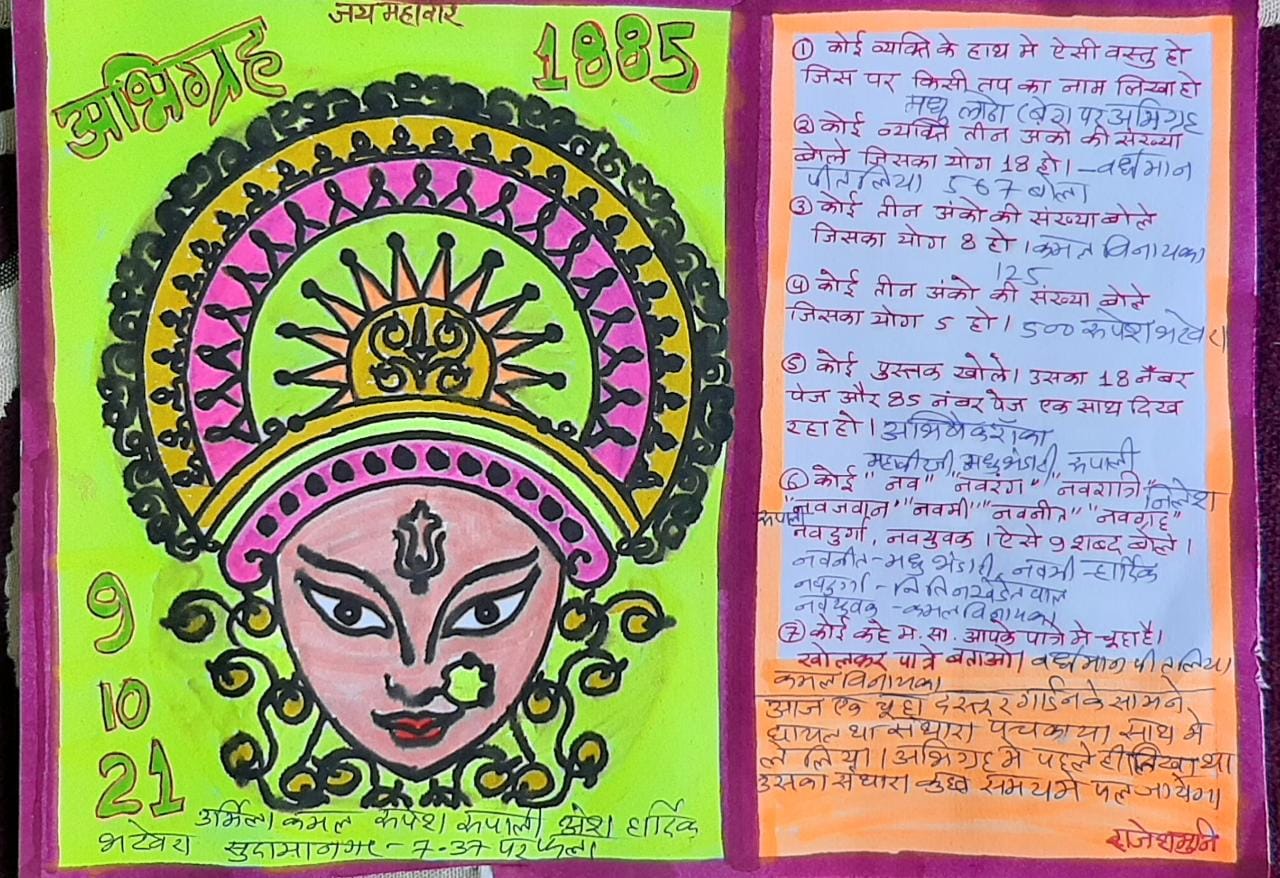 जय महावीर
अभिग्रह
1885
9
10
21
उर्मिला कमल रुपेश रुपाली अंश हार्दिक
भटेवरा सुदामानगर - 7-37 पर फला
① कोई व्यक्ति के हाथ मे ऐसी वस्तु हो
जिस पर किसी तप का नाम लिखा हो
मधु लोढा (बेरा पर अभिग्रह
② कोई व्यक्ति तीन अंको की संख्या
बोले जिसका योग 18 हो। - वर्धमान
पीतलिया 567 बोला
③ कोई तीन अंको की संख्या बोले
जिसका योग 8 हो। कमल विनायका
125
④ कोई तीन अंको की संख्या बोले
जिसका योग 5 हो। 500 रुपेश भटेवरा
⑤ कोई पुस्तक खोले। उसका 18 नँबर
पेज और 85 नंबर पेज एक साथ दिख
रहा हो।
मधु भंडारी रुपाली
⑥ कोई "नव" "नवरंग" "नवरात्रि" नितेश
रुपाली "नवजवान" "नवमी" "नवनीत" "नवग्रह"
नवदुर्गा, नवयुवक। ऐसे 9 शब्द बोले।
नवनीत - मधु भंडारी, नवमी - हार्दिक
नवदुर्गा - नितिन खंडेलवाल
नवयुवक - कमल विनायका
⑦ कोई कहे म. सा. आपके पात्रे मे चूहा है।
खोलकर पात्रे बताओ। वर्धमान पीतलिया
कमल विनायका
आज एक चूहा दस्तुर गार्डन के सामने
घायल था संथारा पचकाया साथ मे
ले लिया। अभिग्रह मे पहले ही लिखा था
उसका संथारा कुछ समय मे फल जायेगा
राजेशमुनि